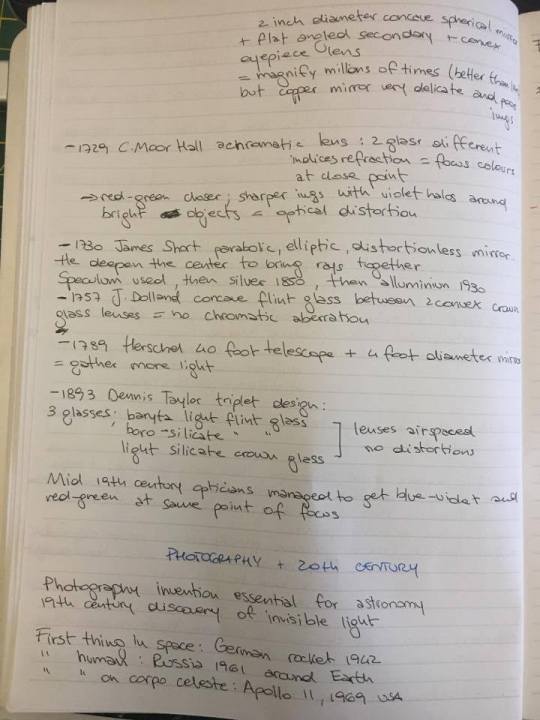 2 inch diameter concave spherical mirror
+ flat angled secondary + convex
eyepiece lens
= magnify millions of times (better than
but copper mirror very delicate and poor
imgs
- 1729 C. Moor Hall achromatic lens : 2 glass different
indices refraction = focus colours
at close point
→ red-green closer; sharper imgs with violet halos around
bright objects = optical distortion
- 1730 James Short parabolic, elliptic, distortionless mirror.
He deepen the center to bring rays together
Speculum used, then silver 1850, then alluminium 1930
- 1757 J. Dolland concave flint glass between 2 convex crown
glass lenses = no chromatic aberration
- 1789 Herschel 40 foot telescope + 4 foot diameter mirror
= gather more light
- 1893 Dennis Taylor triplet design:
3 glasses; baryta light flint glass
boro-silicate " "
light silicate crown glass
lenses airspaced
no distortions
Mid 19th century opticians managed to get blue-violet and
red-green at same point of focus
PHOTOGRAPHY + 20th CENTURY
Photography invention essential for astronomy
19th century discovery of invisible light
First thing in space: German rocket 1942
" human : Russia 1961 around Earth
" " on corpo celeste: Apollo 11, 1969 USA